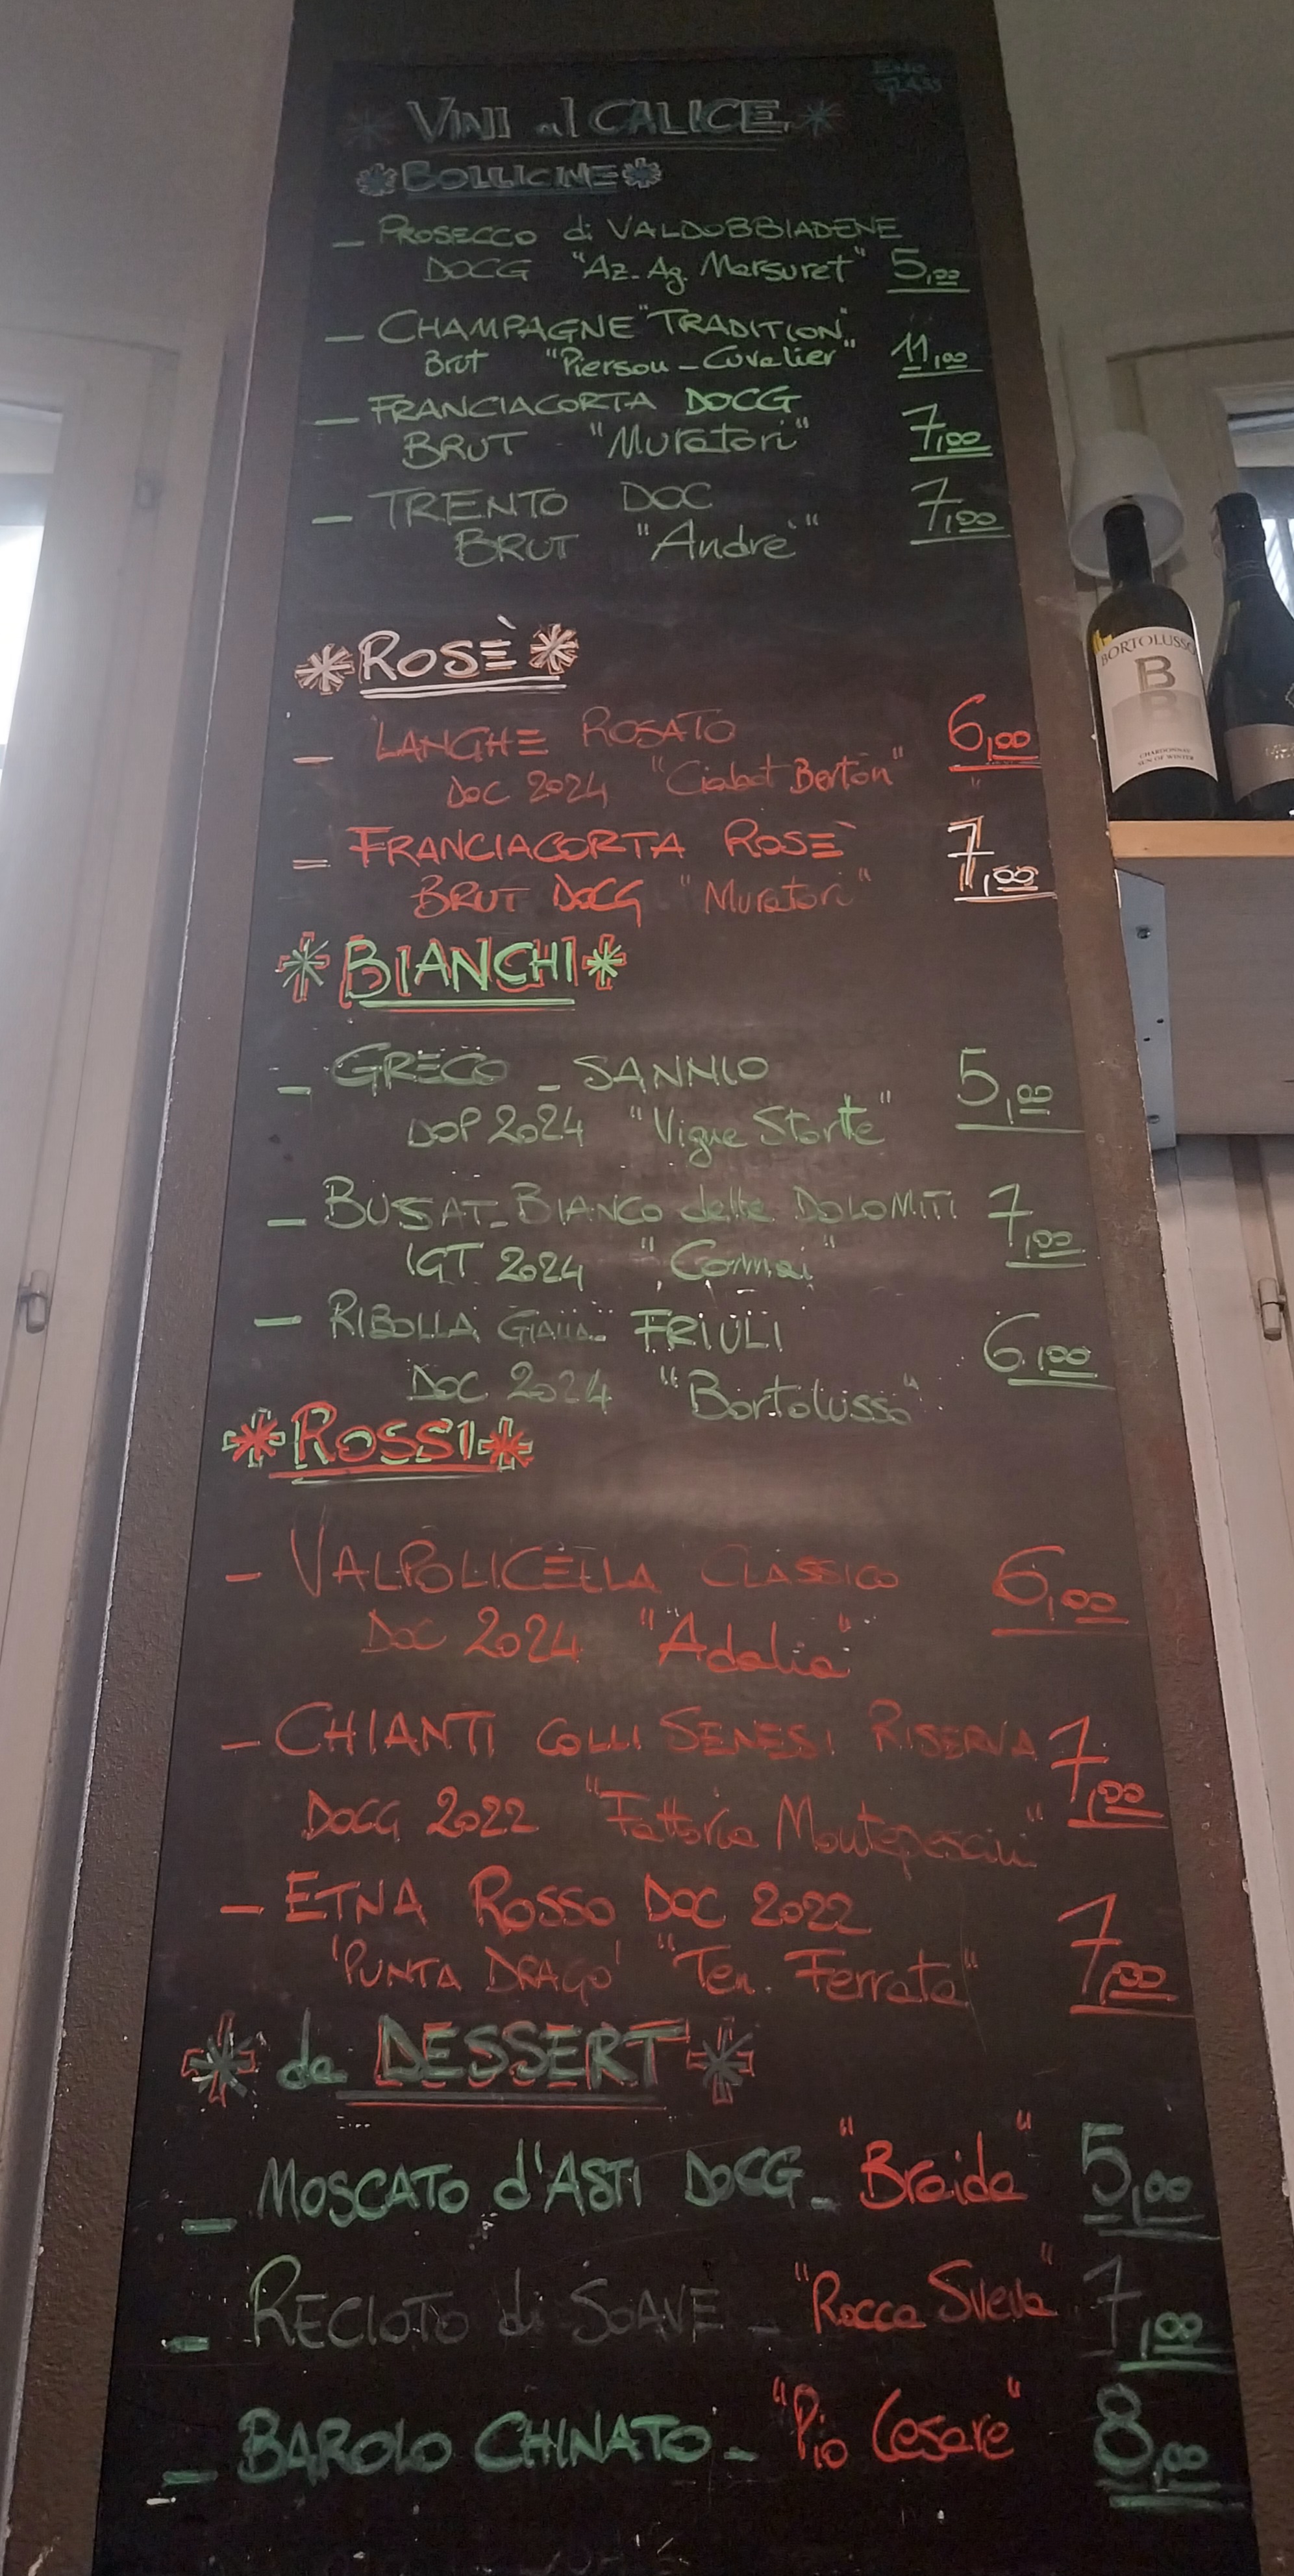 VINI al CALICE
BOLLICINE
- PROSECCO di VALDOBBIADENE
DOCG "Az. Ag. Marsuret" 5,00
- CHAMPAGNE "TRADITION"
Brut "Pierson-Cuvelier" 11,00
- FRANCIACORTA DOCG
BRUT "Muratori" 7,00
- TRENTO DOC 7,00
BRUT "Andrè"
*ROSÈ*
- LANGHE ROSATO 6,00
DOC 2024 "Ciabot Berton"
- FRANCIACORTA ROSÈ 7,00
BRUT DOCG "Muratori"
*BIANCHI*
- GRECO - SANNIO 5,00
DOP 2024 "Vigne Storte"
- BUSAT - BIANCO delle DOLOMITI 7,00
IGT 2024
- RIBOLLA GIALLA FRIULI 6,00
DOC 2024 "Bortolusso"
*ROSSI*
- VALPOLICELLA CLASSICO 6,00
DOC 2024 "Adalia"
- CHIANTI COLLI SENESI RISERVA 7,00
DOCG 2022 "Fattoria Montepescini"
- ETNA ROSSO DOC 2022 7,00
'PUNTA DRAGO' "Ten. Ferrata"
*da DESSERT*
- MOSCATO d'ASTI DOCG - "Braida" 5,00
- RECIOTO di SOAVE - "Rocca Sveva" 7,00
- BAROLO CHINATO - "Pio Cesare" 8,00
BORTOLUSSO
B
CHARDONNAY
SUN OF WINTER